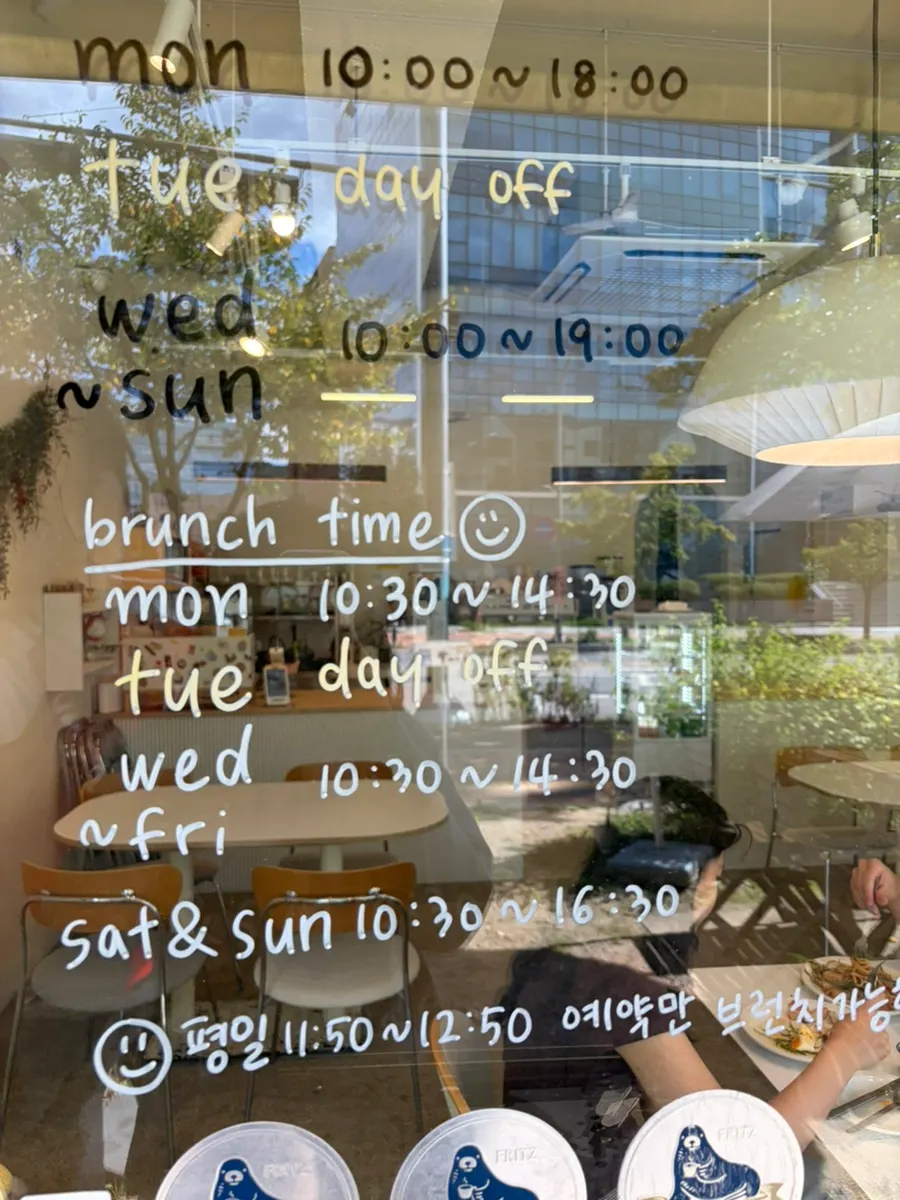 mon 10:00~18:00
tue day off
wed
~sun 10:00~19:00
brunch time
mon 10:30~14:30
tue day off
wed
~fri 10:30~14:30
sat&sun 10:30~16:30
평일 11:50~12:50 예약만 브런치가능
FRITZ FRITZ FRITZ